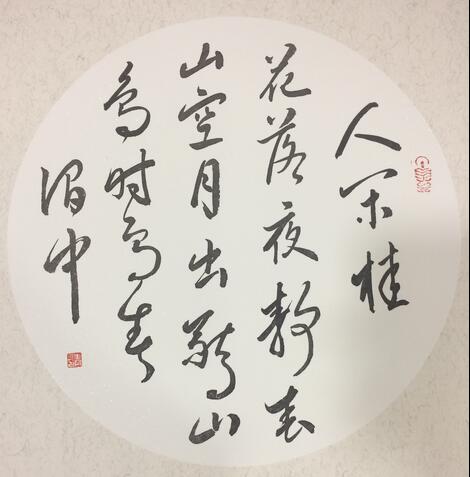 人闲桂
花落夜静春
山空月出惊山
鸟时鸣春
涧中